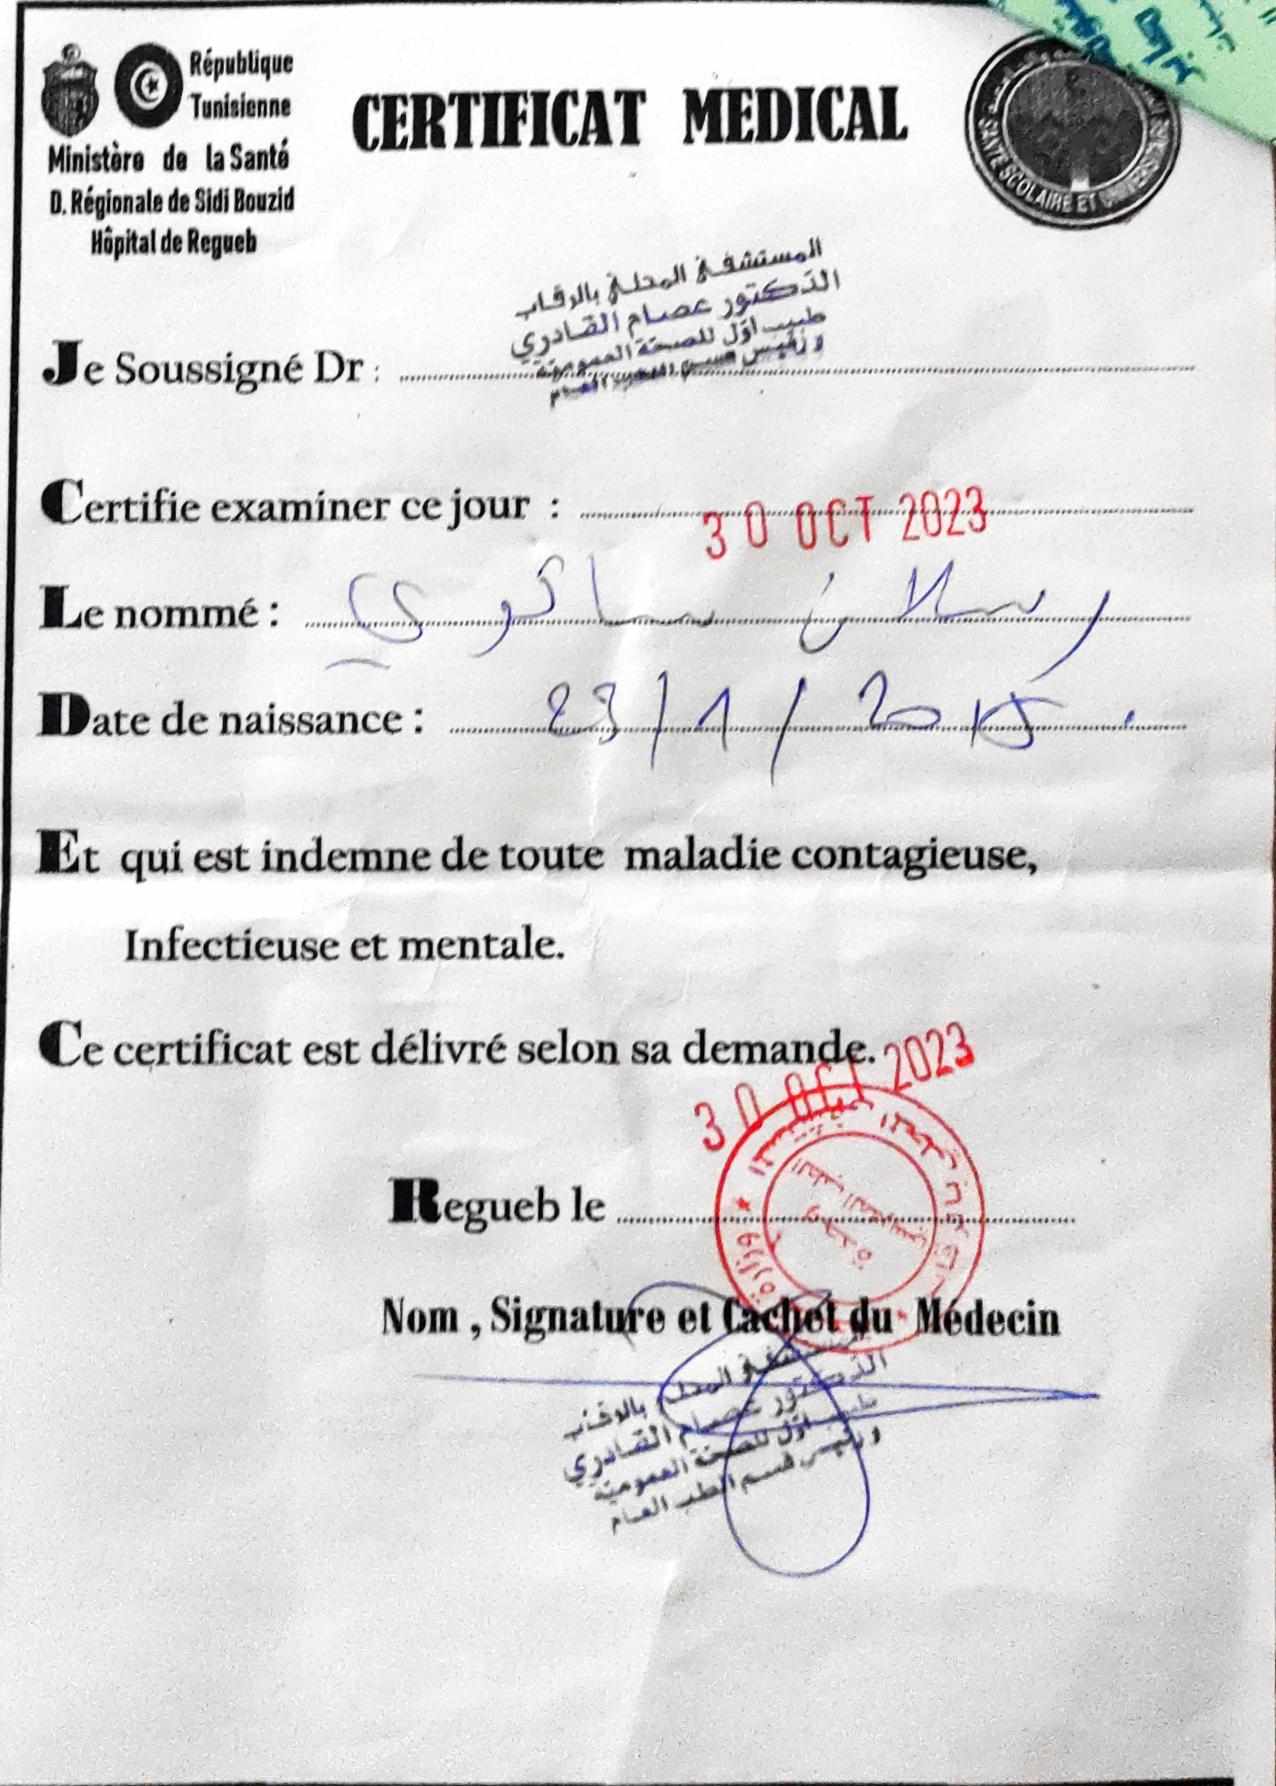 République
Tunisienne
Ministère de la Santé
D. Régionale de Sidi Bouzid
Hôpital de Regueb
CERTIFICAT MEDICAL
SANTE SCOLAIRE ET UNIVERSITAIRE
المستشفى المحلي بالرقاب
الدكتور عصام القادري
طبيب أوّل للصحة العمومية
ورئيس قسم الطب العام
Je Soussigné Dr :
Certifie examiner ce jour : 30 OCT 2023
Le nommé : رسلان ساكري
Date de naissance : 23/1/2015
Et qui est indemne de toute maladie contagieuse,
Infectieuse et mentale.
Ce certificat est délivré selon sa demande.
30 OCT 2023
Regueb le
Nom , Signature et Cachet du Médecin
المستشفى المحلي بالرقاب
الدكتور عصام القادري
طبيب أوّل للصحة العمومية
ورئيس قسم الطب العام